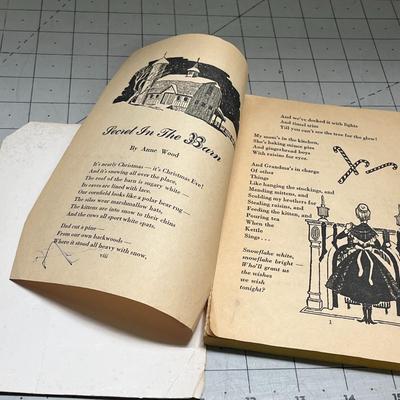 Secret In The Barn
By Anne Wood
It's nearly Christmas — it's Christmas Eve!
And it's snowing all over the place.
The roof of the barn is sugary white
Its eaves are lined with lace,
Our cornfield looks like a polar bear rug —
The silos wear marshmallow hats,
The kittens are into snow to their chins
And the cows all sport white spats.
Dad cut a pine —
From our own backwoods —
Where it stood all heavy with snow,
viii
And we've decked it with lights
And tinsel trim
Till you can't see the tree for the glow!
My mom's in the kitchen,
She's baking mince pies
And gingerbread boys
With raisins for eyes.
And Grandma's in charge
Of other
Things
Like hanging the stockings, and
Mending mittens, and
Scolding my brothers for
Stealing raisins, and
Feeding the kitten, and
Pouring tea
When the
Kettle
Sings . . .
Snowflake white,
snowflake bright —
Who'll grant us
the wishes
we wish
tonight?
1